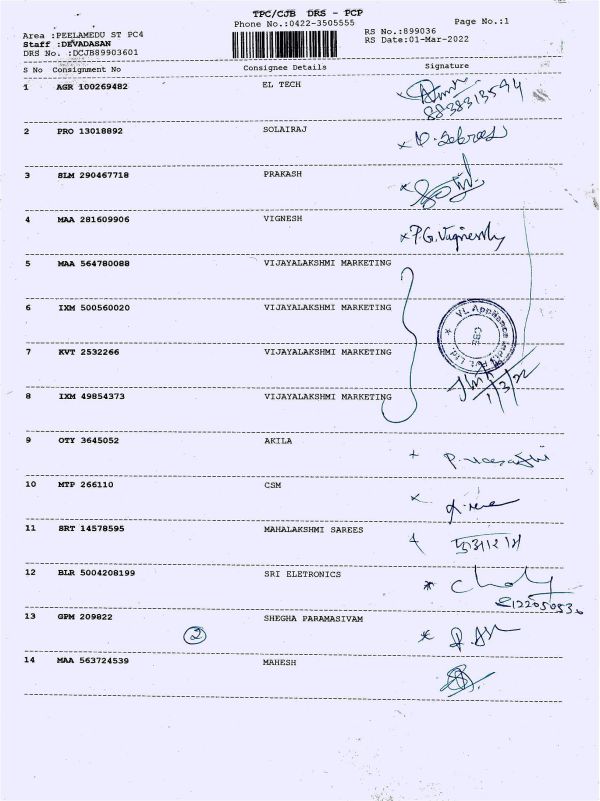 TPC/CJB DRS - PCP
Phone No.:0422-3505555
Page No.:1
Area :PEELAMEDU ST PC4
RS No.:899036
Staff :DEVADASAN
RS Date:01-Mar-2022
DRS No. :DCJB89903601
S No Consignment No Consignee Details Signature
1 AGR 100269482 EL TECH
8838313594
2 PRO 13018892 SOLAIRAJ
3 SLM 290467718 PRAKASH
4 MAA 281609906 VIGNESH
P.G. Vignesh
5 MAA 564780088 VIJAYALAKSHMI MARKETING
6 IXM 500560020 VIJAYALAKSHMI MARKETING
7 KVT 2532266 VIJAYALAKSHMI MARKETING
1/3/22
8 IXM 49854373 VIJAYALAKSHMI MARKETING
9 OTY 3645052 AKILA
10 MTP 266110 CSM
11 SRT 14578595 MAHALAKSHMI SAREES
12 BLR 5004208199 SRI ELETRONICS
13 GPM 209822 SHEGHA PARAMASIVAM
2
14 MAA 563724539 MAHESH